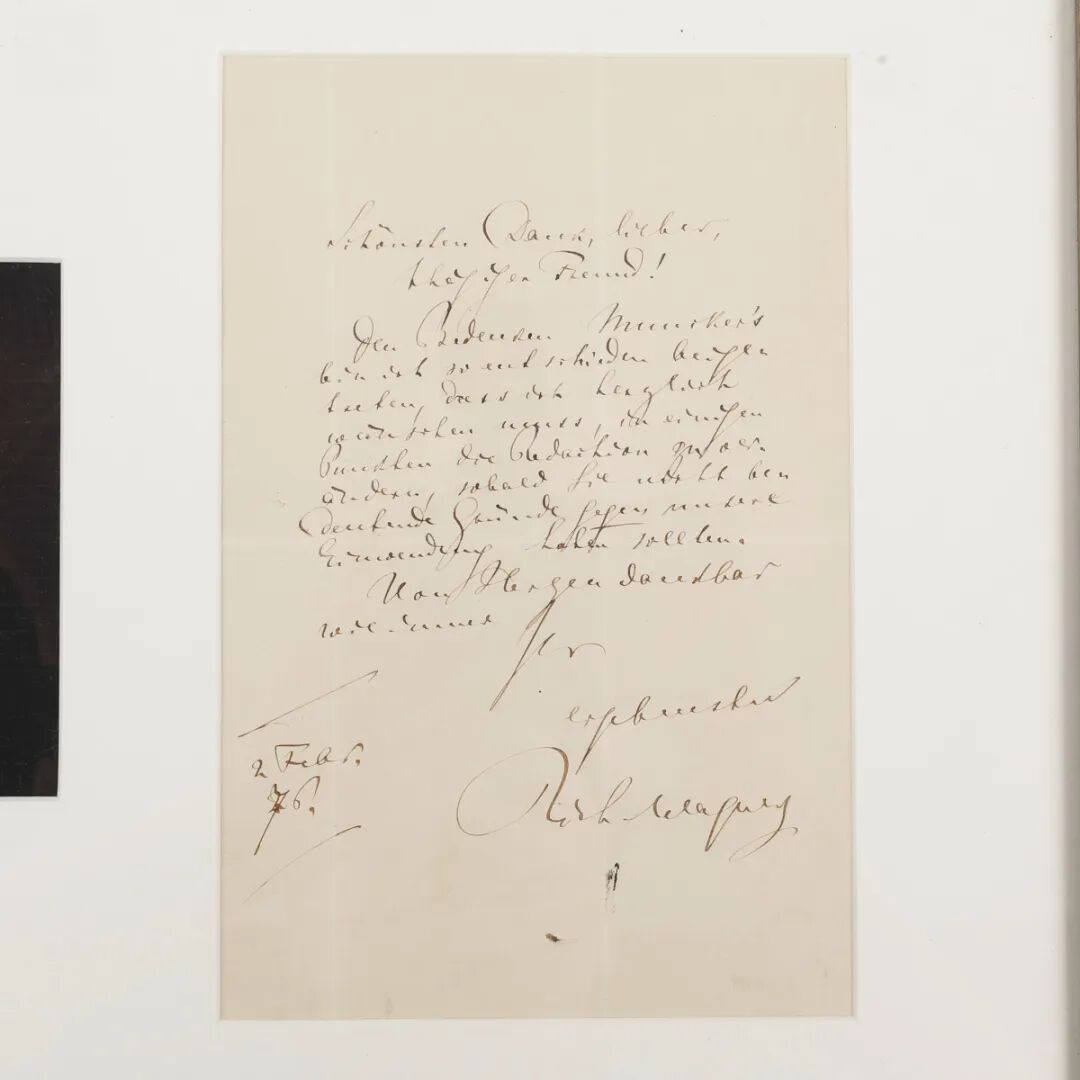 Schönsten Dank, lieber,
thätiger Freund!
Den Bedenken Muncker's
bin ich so entschieden beige
treten, dass ich herzlich
wünschen muss, in einigen
Punkten die Redaction zu ver-
ändern, sobald Sie nicht be
deutende Gründe gegen unsere
Einwendung haben sollten.
Von Herzen dankbar
wie immer
Ihr
ergebenster
Rich. Wagner
2 Febr.
76.